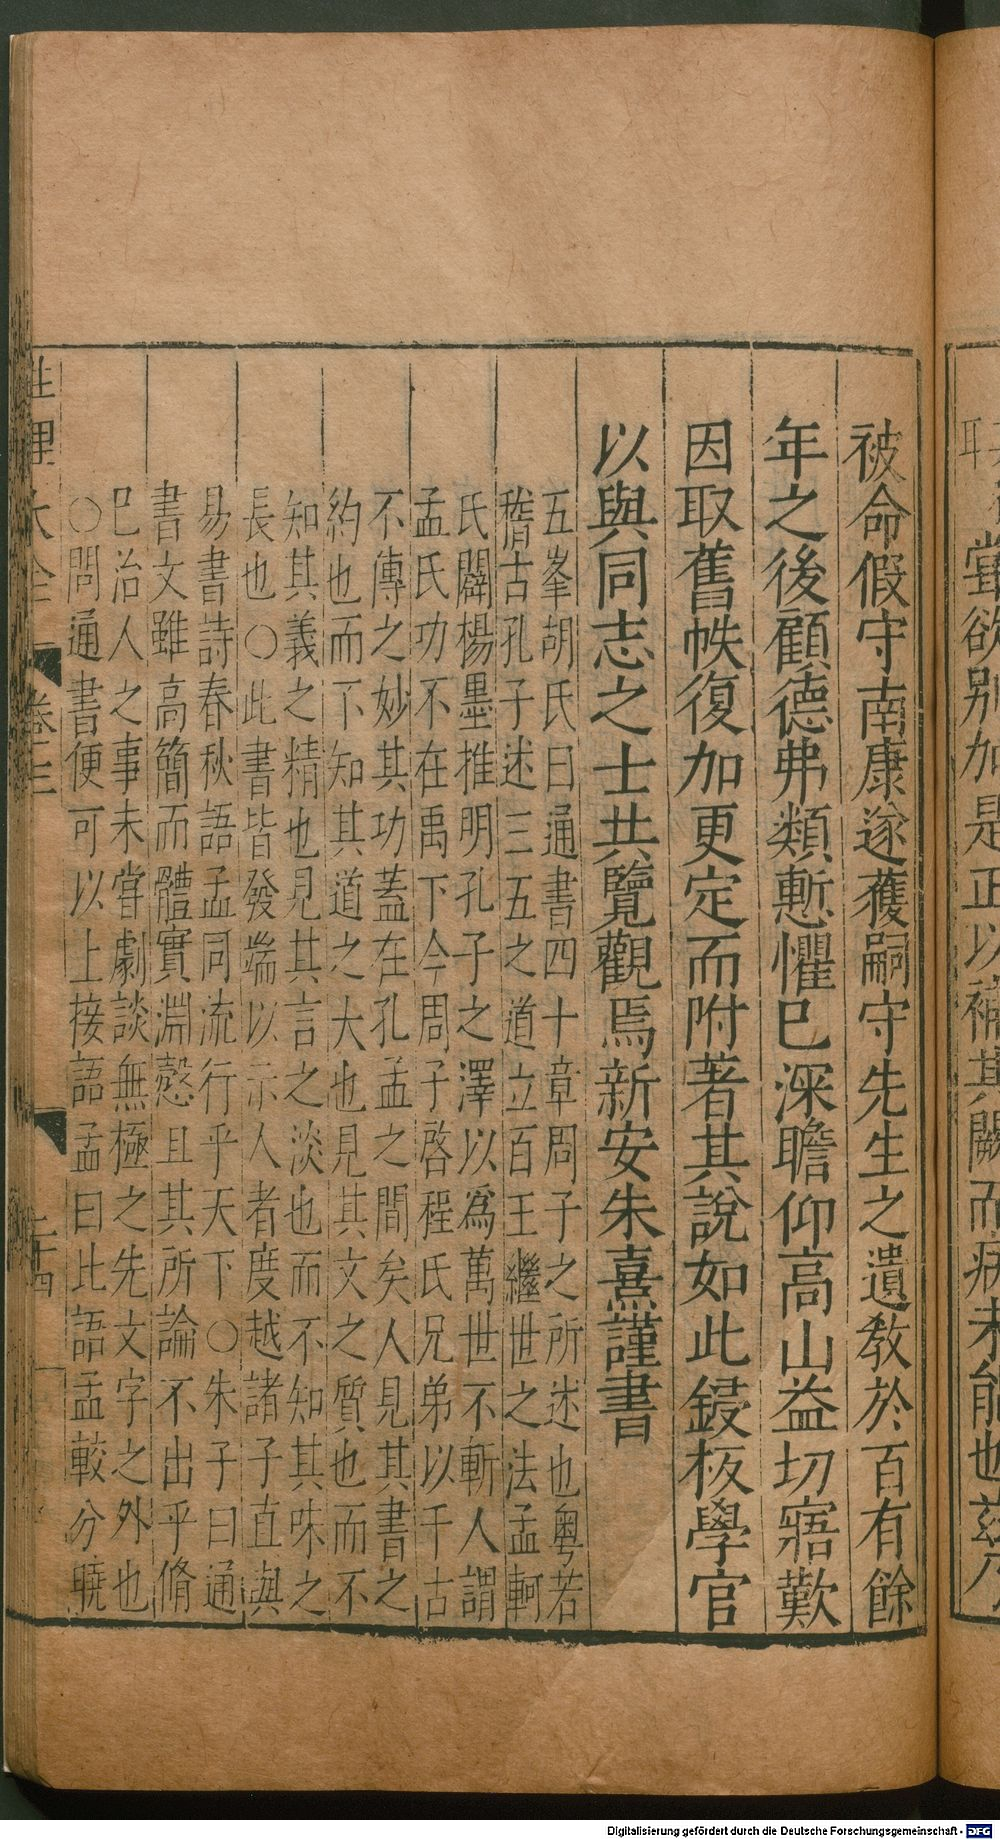 被命假守南康遂獲嗣守先生之遺敎於百有餘
年之後顧德弗類慙懼已深瞻仰高山益切寤歎
因取舊帙復加更定而附著其說如此鋟板學官
以與同志之士共覽觀焉新安朱熹謹書
五峯胡氏曰通書四十章周子之所述也粵若
稽古孔子述三五之道立百王繼世之法孟軻
氏闢楊墨推明孔子之澤以爲萬世不斬人謂
孟氏功不在禹下今周子啓程氏兄弟以千古
不傳之妙其功蓋在孔孟之間矣人見其書之
約也而不知其道之大也見其文之質也而不
知其義之精也見其言之淡也而不知其味之
長也○此書皆發端以示人者度越諸子直與
易書詩春秋語孟同流行乎天下○朱子曰通
書文雖高簡而體實淵慤且其所論不出乎脩
已治人之事未嘗劇談無極之先文字之外也
○問通書便可以上接語孟曰比語孟較分曉
性理大全 卷之三 二十四
當欲别加是正以補其闕而病未能也茲乃
Digitalisierung gefördert durch die Deutsche Forschungsgemeinschaft - DFG